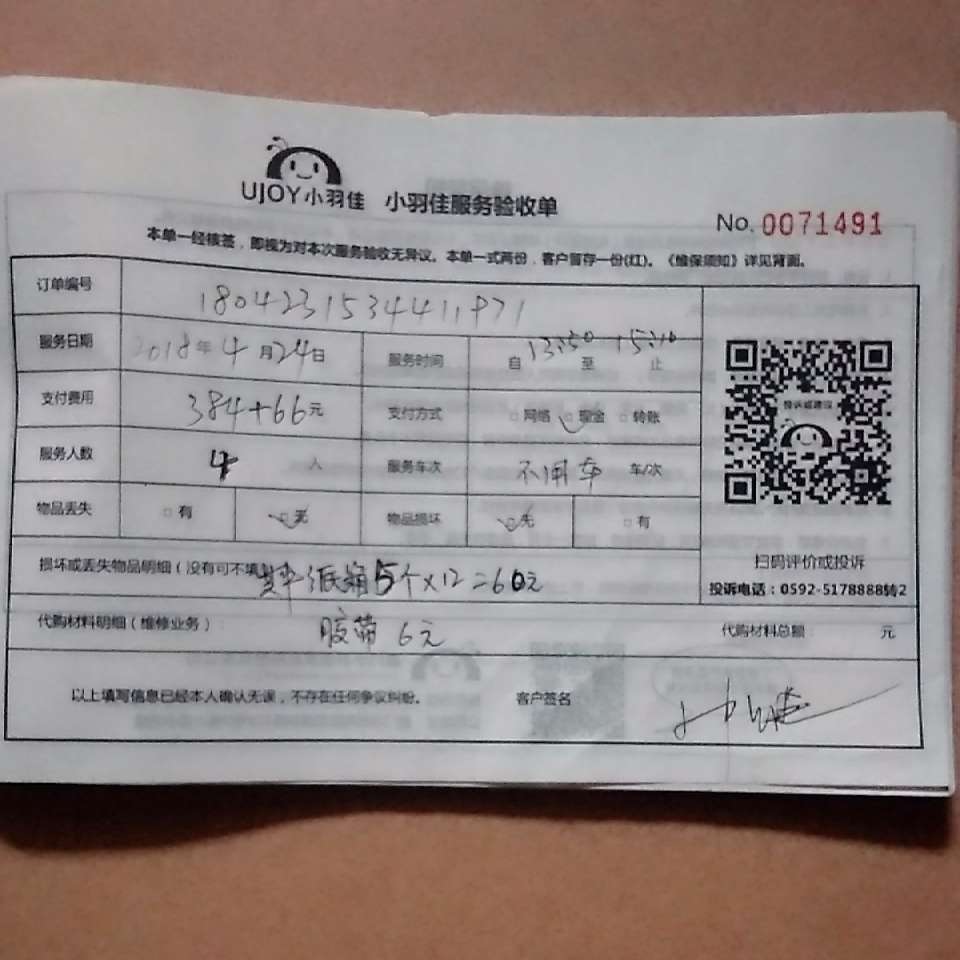 UJOY小羽佳 小羽佳服务验收单
No. 0071491
本单一经核签，即视为对本次服务验收无异议。本单一式两份，客户留存一份(红)。《维保须知》详见背面。
订单编号
服务日期 2018年4月24日 服务时间 自13:50至15:10止
支付费用 384+66元 支付方式 □网络 □现金 □转账
投诉或建议
服务人数 4人 服务车次 不用车 车/次
物品丢失 □有 □无 物品损坏 □无 □有
扫码评价或投诉
损坏或丢失物品明细（没有可不填） 纸箱5个×12=60元
投诉电话：0592-5178888转2
代购材料明细（维修业务）： 胶带 6元 代购材料总额： 元
以上填写信息已经本人确认无误，不存在任何争议纠纷。 客户签名